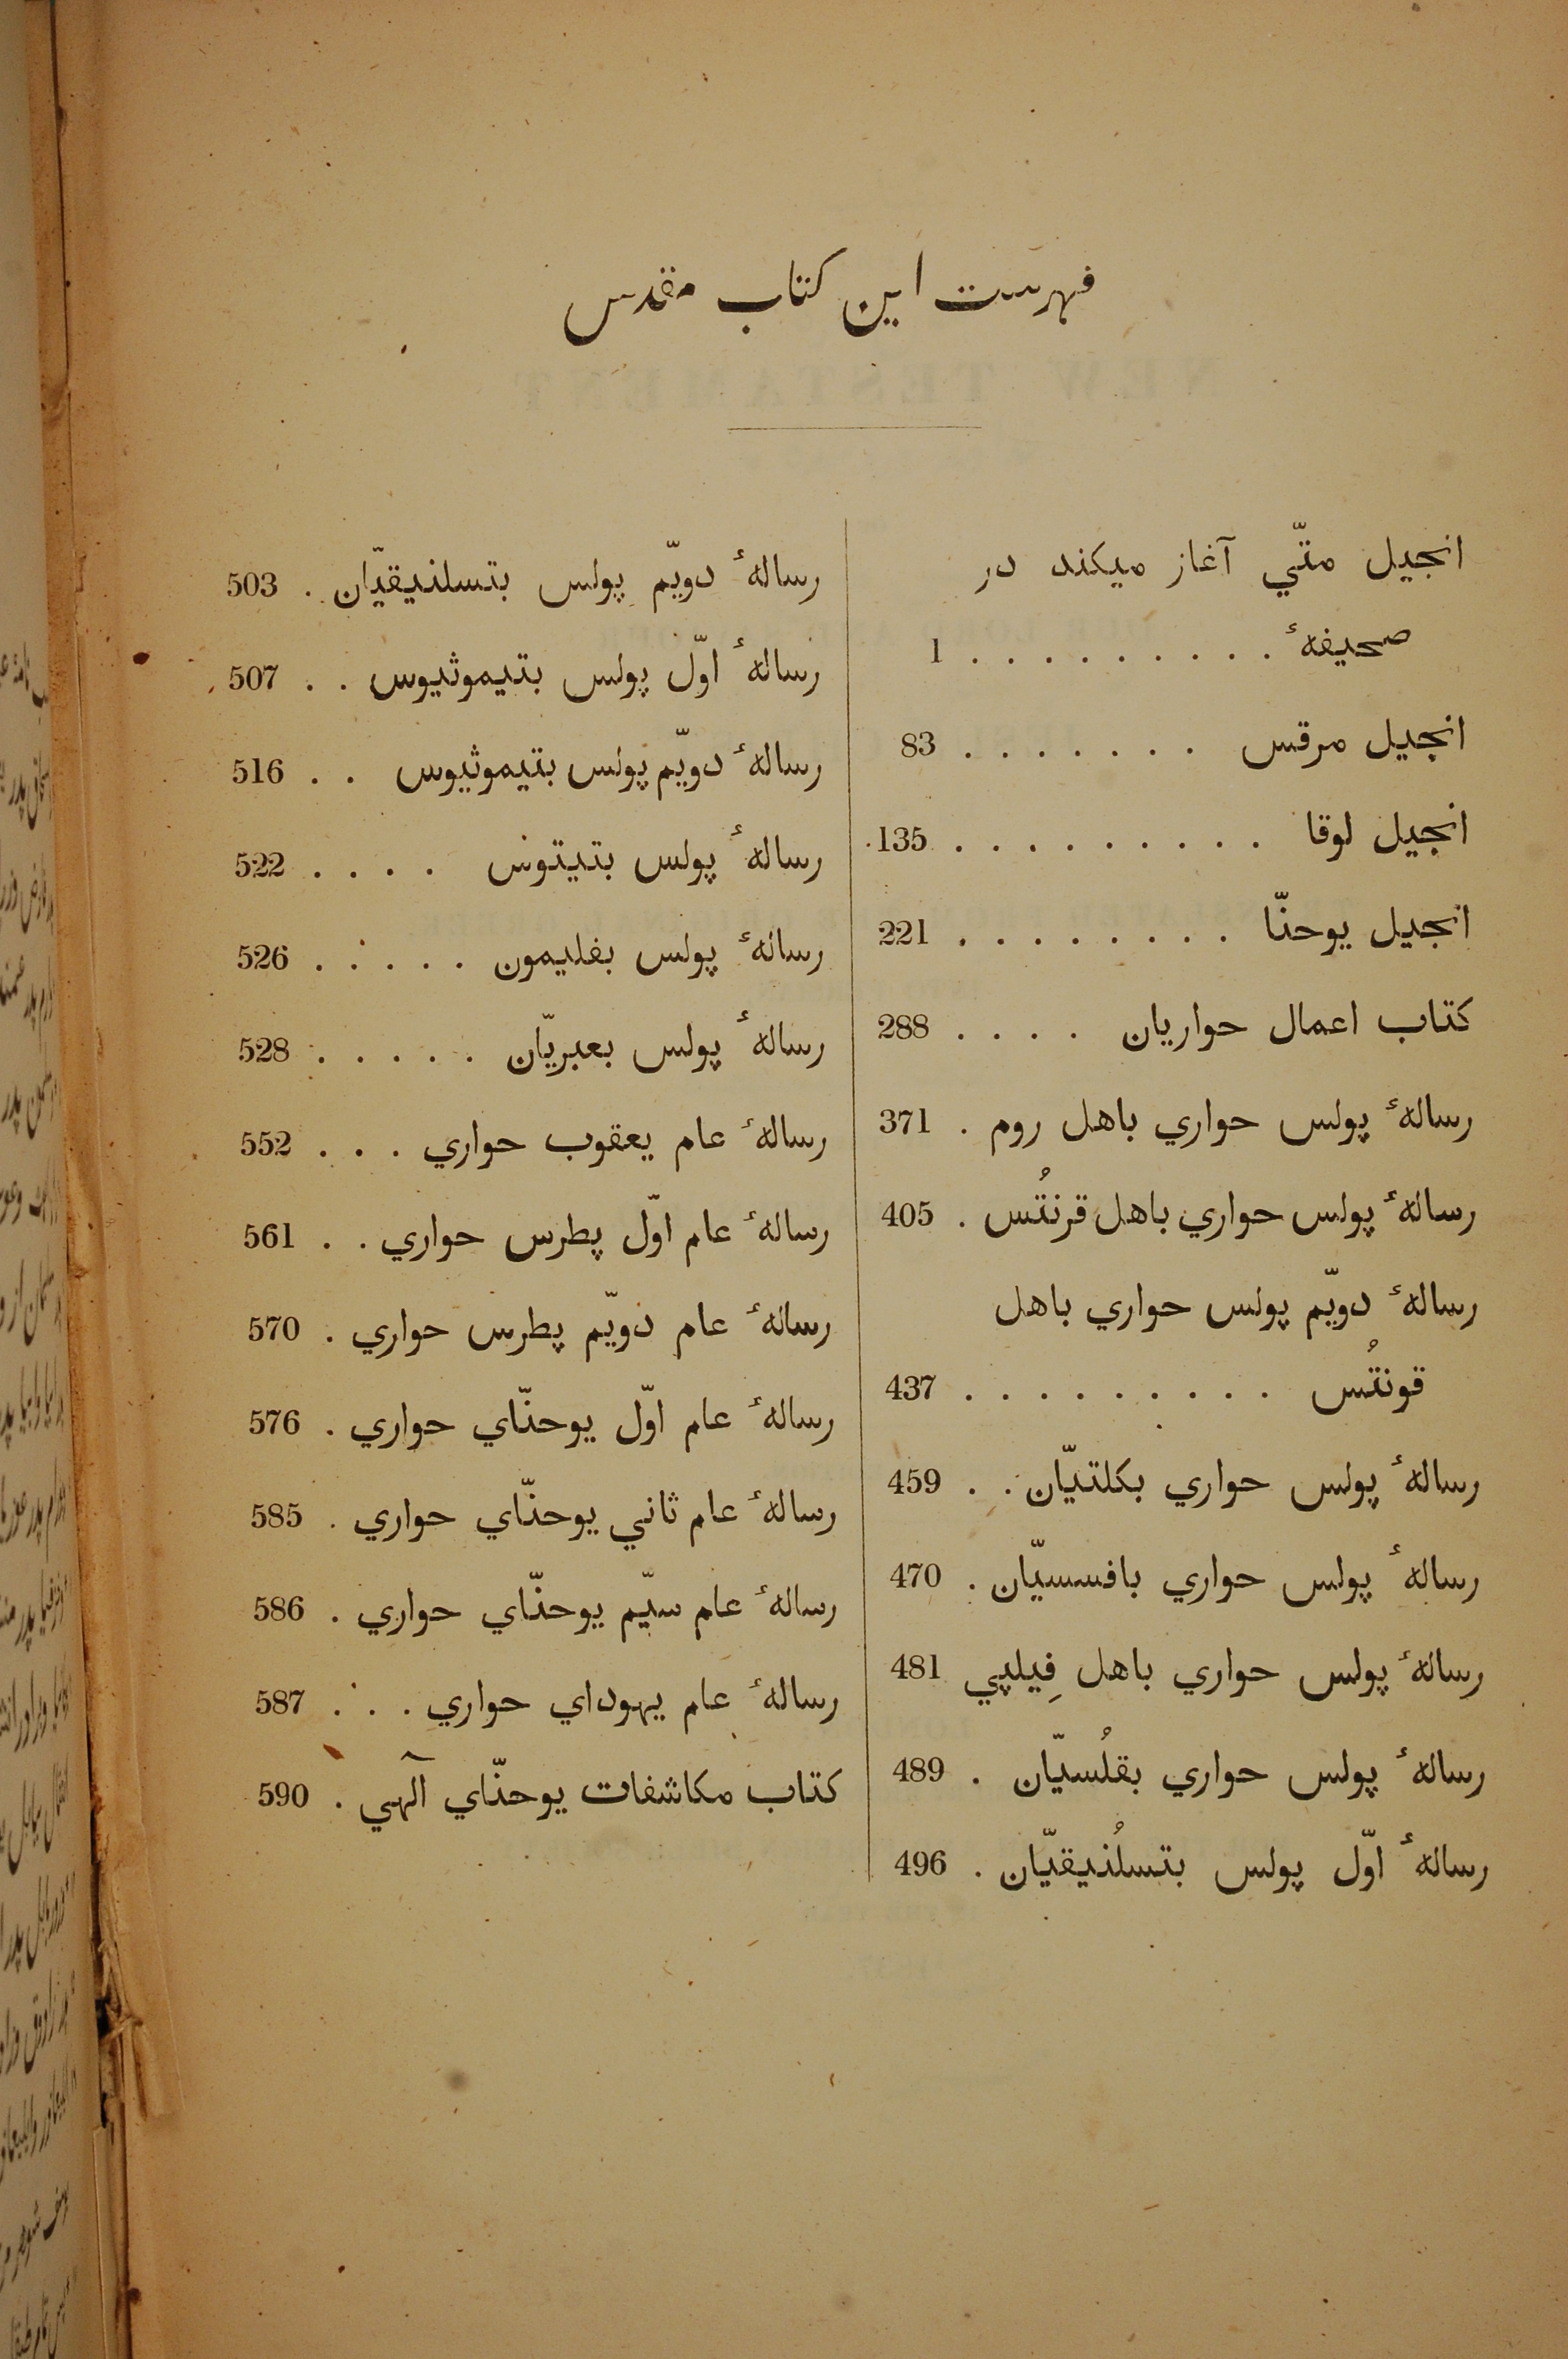 فهرست این کتاب مقدس
انجیل متّي آغاز میکند در
صحیفهٔ . . . . . . . . . 1
انجیل مرقس . . . . . . . 83
انجیل لوقا . . . . . . . . . 135
انجیل یوحنّا . . . . . . . . 221
کتاب اعمال حواریان . . . . 288
رسالهٔ پولس حواري باهل روم . 371
رسالهٔ پولس حواري باهل قرنتُس . 405
رسالهٔ دویّم پولس حواري باهل
قونتُس . . . . . . . . . 437
رسالهٔ پولس حواري بکلتیّان . . 459
رسالهٔ پولس حواري بافسسیّان . 470
رسالهٔ پولس حواري باهل فِیلپي 481
رسالهٔ پولس حواري بقلُسیّان . 489
رسالهٔ اوّل پولس بتسلُنیقیّان . 496
رسالهٔ دویّم پولس بتسلنیقیّان . 503
رسالهٔ اوّل پولس بتیموثیوس . . 507
رسالهٔ دویّم پولس بتیموثیوس . . 516
رسالهٔ پولس بتیتوس . . . . 522
رسالهٔ پولس بفلیمون . . . . . 526
رسالهٔ پولس بعبریّان . . . . . 528
رسالهٔ عام یعقوب حواري . . . 552
رسالهٔ عام اوّل پطرس حواري . . 561
رسالهٔ عام دویّم پطرس حواري . 570
رسالهٔ عام اوّل یوحنّاي حواري . 576
رسالهٔ عام ثاني یوحنّاي حواري . 585
رسالهٔ عام سیّم یوحنّاي حواري . 586
رسالهٔ عام یهوداي حواري . . . 587
کتاب مکاشفات یوحنّاي آلهي . 590